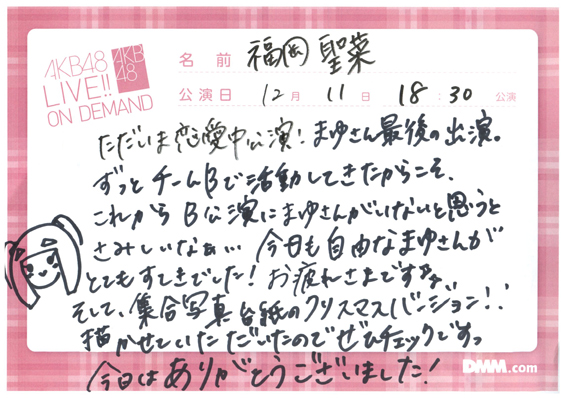 AKB48
LIVE!!
ON DEMAND
AKB
48
名前 福岡 聖菜
公演日 12月 11日 18:30 公演
ただいま恋愛中公演！まゆさん最後の出演。
ずっとチームBで活動してきたからこそ、
これからB公演にまゆさんがいないと思うと
さみしいなぁ… 今日も自由なまゆさんが
とてもすてきでした！お疲れさまですっ
そして、集合写真台紙のクリスマスバージョン！！
描かせていただいたのでぜひチェックですっ
今日はありがとうございました！
DMM.com